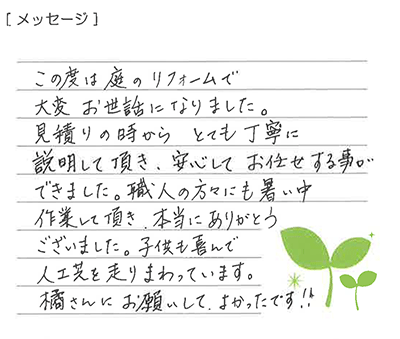 [メッセージ]
この度は庭のリフォームで
大変お世話になりました。
見積りの時から とても丁寧に
説明して頂き、安心してお任せする事が
できました。職人の方々にも暑い中
作業して頂き、本当にありがとう
ございました。子供も喜んで
人工芝を走りまわっています。
橘さんにお願いして、よかったです!!